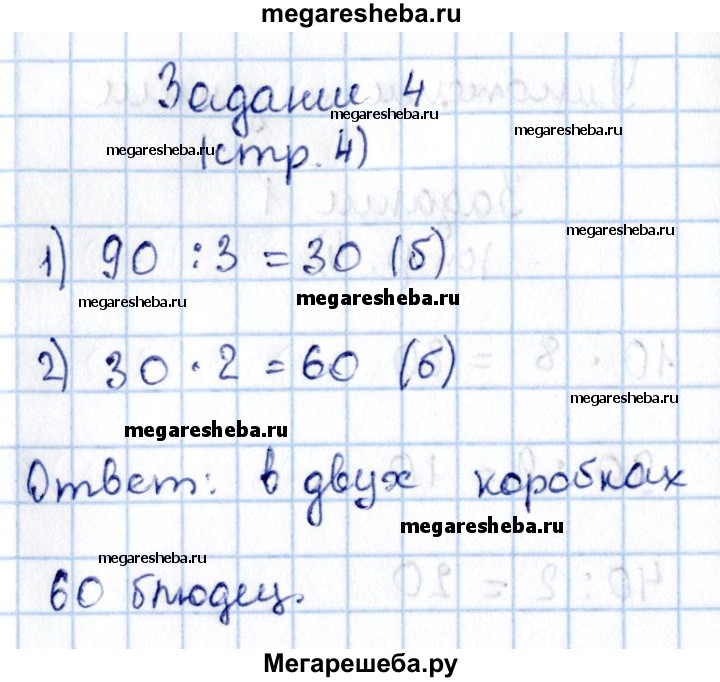 megaresheba.ru
Задание 4
megaresheba.ru
megaresheba.ru
megaresheba.ru
(стр. 4)
megaresheba.ru
1) 90 : 3 = 30 (б)
megaresheba.ru
megaresheba.ru
2) 30 · 2 = 60 (б)
megaresheba.ru
megaresheba.ru
Ответ: в двух коробках
megaresheba.ru
megaresheba.ru
60 блюдец.
Мегарешеба.ру